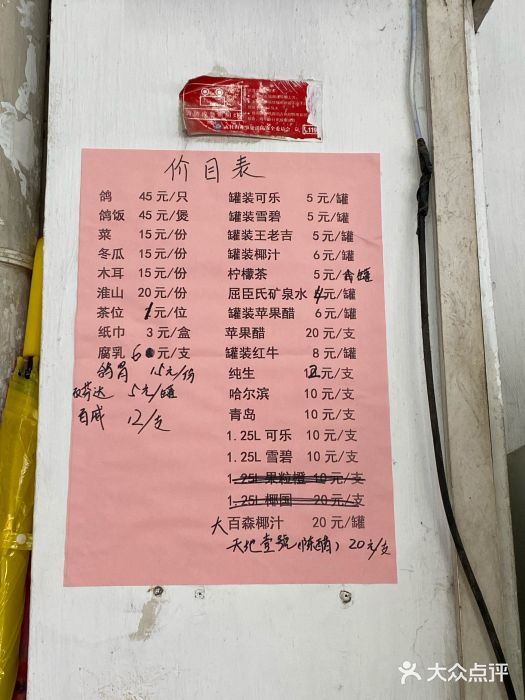 119
价目表
鸽 45元/只
鸽饭 45元/煲
菜 15元/份
冬瓜 15元/份
木耳 15元/份
淮山 20元/份
茶位 1元/位
纸巾 3元/盒
腐乳 6元/支
15元/份
芬达 5元/罐
百威 12/支
罐装可乐 5元/罐
罐装雪碧 5元/罐
罐装王老吉 5元/罐
罐装椰汁 6元/罐
柠檬茶 5元/罐
屈臣氏矿泉水 4元/罐
罐装苹果醋 6元/罐
苹果醋 20元/支
罐装红牛 8元/罐
纯生 12元/支
哈尔滨 10元/支
青岛 10元/支
1.25L可乐 10元/支
1.25L雪碧 10元/支
1.25L果粒橙 10元/支
1.25L椰国 20元/支
大百森椰汁 20元/罐
天地壹號(陈醋) 20元/支
大众点评